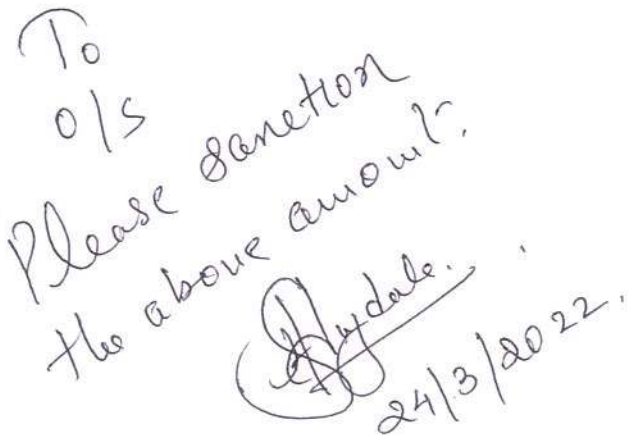 To
O/S
Please sanction
the above amount.
24/3/2022.